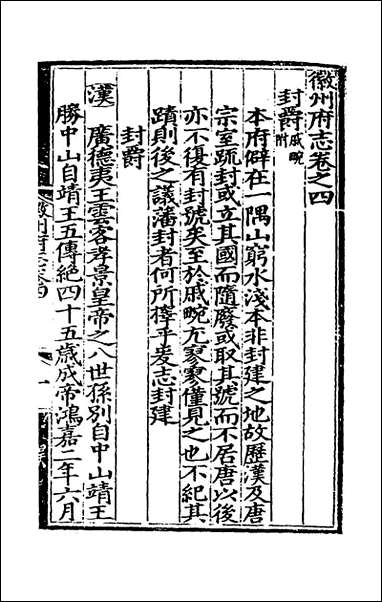 徽州府志卷之四
封爵戚畹附
本府僻在一隅山窮水淺本非封建之地故歷漢及唐
宗室䟽封或立其國而隨廢或取其號而不居唐以後
亦不復有封號矣至於戚畹尢寥寥僅見之也不紀其
蹟則後之議藩封者何所擇乎爰志封建
封爵
漢 廣德夷王雲客孝景皇帝之八世孫別自中山靖王
勝中山自靖王五傳絕四十五歲成帝鴻嘉二年六月